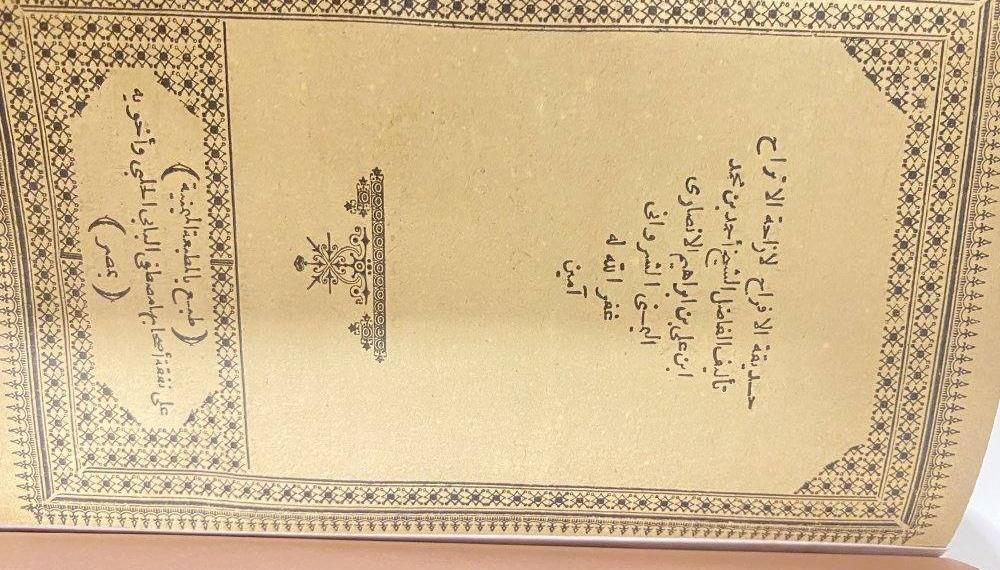 حديقة الافراح لازاحة الاتراح
تأليف الفاضل الشيخ أحمد بن محمد
ابن على بن ابراهيم الانصارى
اليمنى الشروانى
غفر الله له
آمين
(طبع بالمطبعة الميمنية)
على نفقة أصحابها مصطفى البابى الحلبى وأخويه
(بمصر)